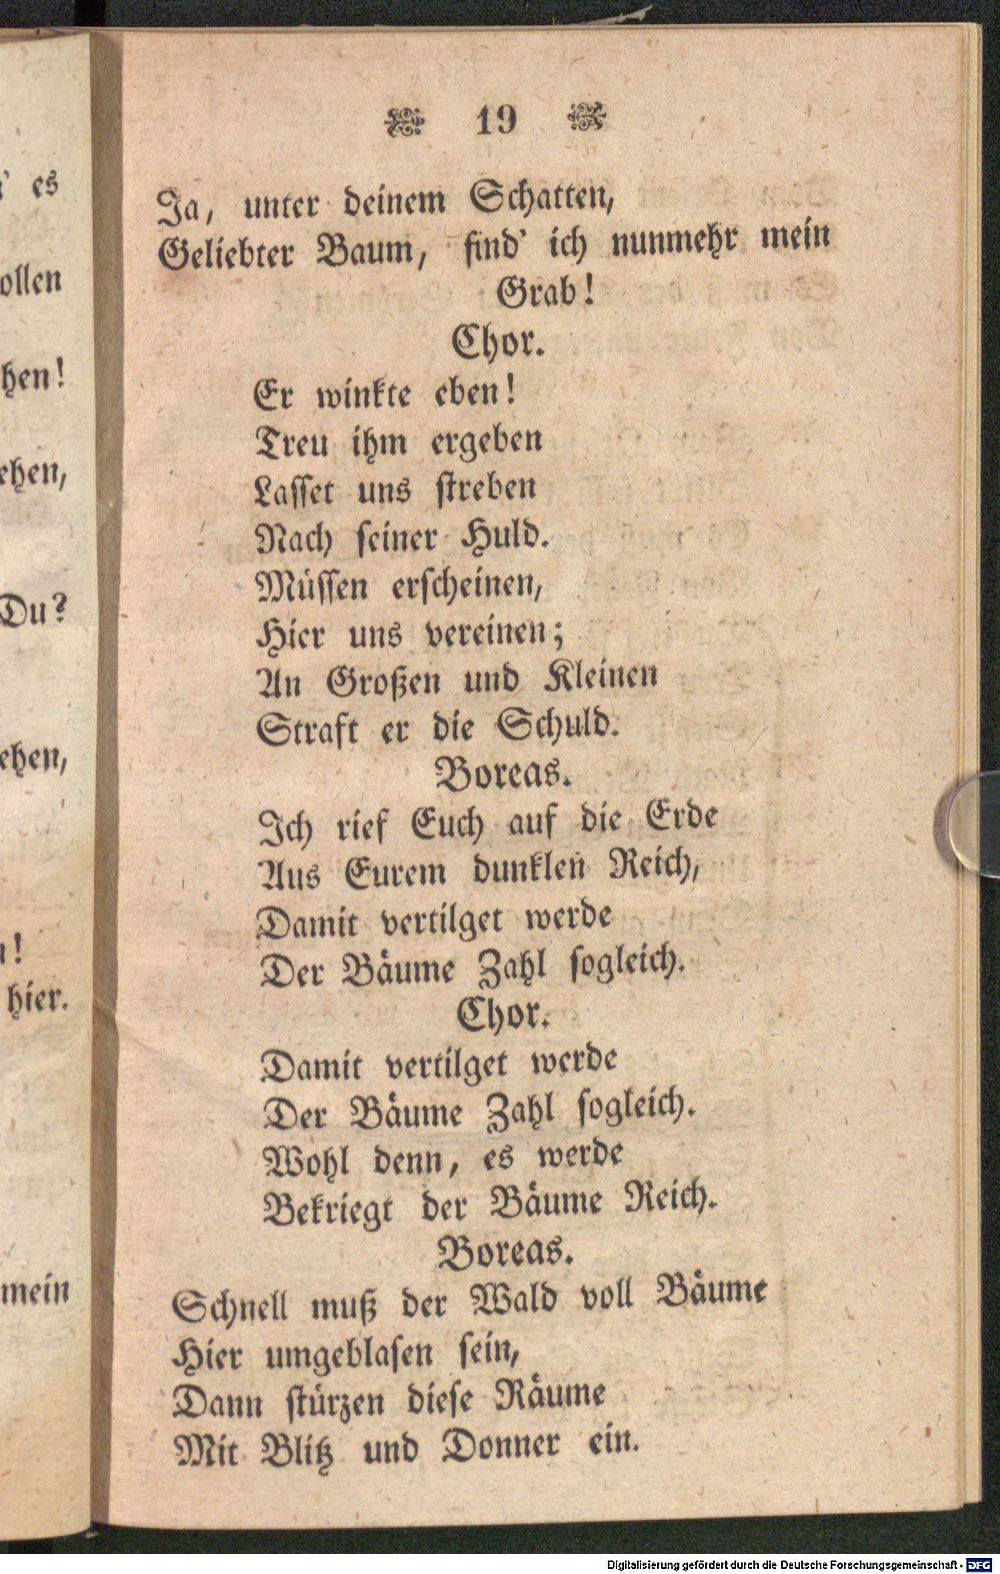 ' es
ollen
hen!
ehen,
Du?
ehen,
n!
hier.
mein
19
Ja, unter deinem Schatten,
Geliebter Baum, find' ich nunmehr mein
Grab!
Chor.
Er winkte eben!
Treu ihm ergeben
Lasset uns streben
Nach seiner Huld.
Müssen erscheinen,
Hier uns vereinen;
An Großen und Kleinen
Straft er die Schuld.
Boreas.
Ich rief Euch auf die Erde
Aus Eurem dunklen Reich,
Damit vertilget werde
Der Bäume Zahl sogleich.
Chor.
Damit vertilget werde
Der Bäume Zahl sogleich.
Wohl denn, es werde
Bekriegt der Bäume Reich.
Boreas.
Schnell muß der Wald voll Bäume
Hier umgeblasen sein,
Dann stürzen diese Räume
Mit Blitz und Donner ein.
Digitalisierung gefördert durch die Deutsche Forschungsgemeinschaft - DFG